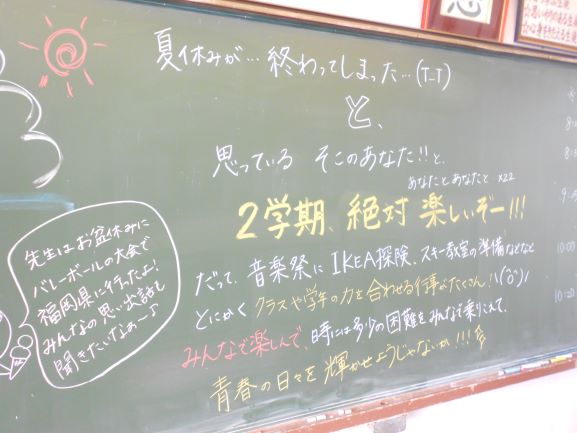 夏休みが… 終わってしまった…(T_T)
と、
思っている そこのあなた!!と、
あなたとあなたと ×22
2学期、絶対 楽しいぞー!!!
だって、音楽祭に IKEA探険、スキー教室の準備などなど
とにかく クラスや学年の力を合わせる行事がたくさん!!
みんなで楽しんで、時には多少の困難をみんなで乗りこえて、
青春の日々を 輝かせようじゃないか!!!
先生はお盆休みに
バレーボールの大会で
福岡県に行ったよ!
みんなの思い出話も
聞きたいなぁー♪
8:
8:
9:
10:00
10:20